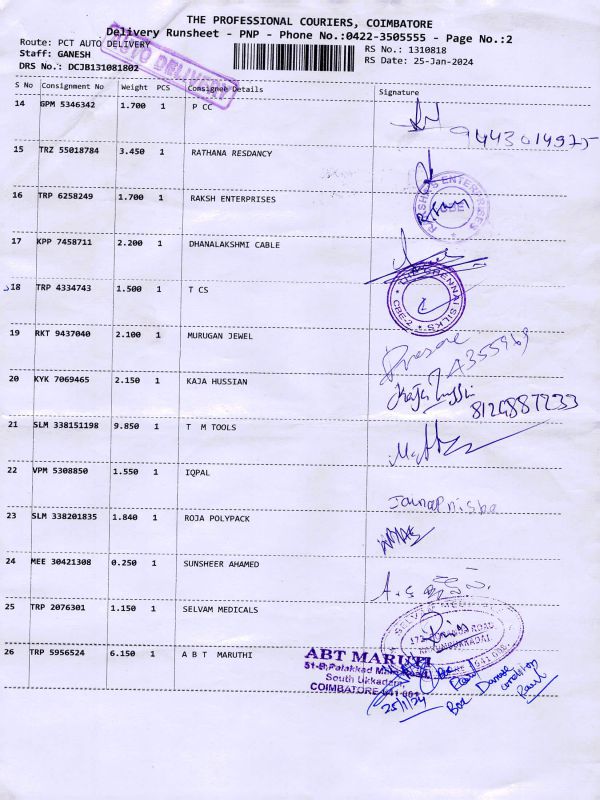 THE PROFESSIONAL COURIERS, COIMBATORE
Delivery Runsheet - PNP - Phone No.:0422-3505555 - Page No.:2
Route: PCT AUTO DELIVERY
RS No.: 1310818
Staff: GANESH
RS Date: 25-Jan-2024
DRS No.: DCJB131081802
AUTO DELIVERY
S No Consignment No Weight PCS Consignee Details Signature
14 GPM 5346342 1.700 1 P CC
9443014975
15 TRZ 55018784 3.450 1 RATHANA RESDANCY
16 TRP 6258249 1.700 1 RAKSH ENTERPRISES
17 KPP 7458711 2.200 1 DHANALAKSHMI CABLE
18 TRP 4334743 1.500 1 T CS
CHENNAI SILKS
CBE-2
19 RKT 9437040 2.100 1 MURUGAN JEWEL
20 KYK 7069465 2.150 1 KAJA HUSSIAN
8124887233
21 SLM 338151198 9.850 1 T M TOOLS
22 VPM 5308850 1.550 1 IQPAL
23 SLM 338201835 1.840 1 ROJA POLYPACK
24 MEE 30421308 0.250 1 SUNSHEER AHAMED
25 TRP 2076301 1.150 1 SELVAM MEDICALS
26 TRP 5956524 6.150 1 A B T MARUTHI
ABT MARUTI
51-B, Palakkad Main Road,
South Ukkadam,
COIMBATORE-641 001
25/1/24
Box Damage condition